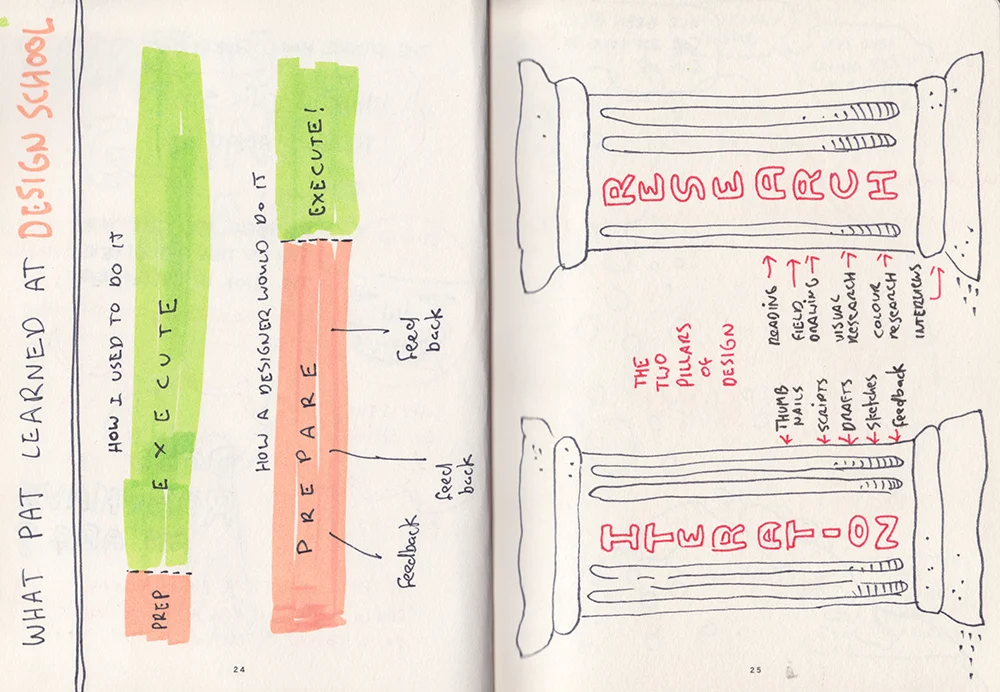 WHAT PAT LEARNED AT DESIGN SCHOOL
HOW I USED TO DO IT
PREP
EXECUTE
HOW A DESIGNER WOULD DO IT
PREPARE
EXECUTE!
feedback
feed
back
feed
back
24
THE
TWO
PILLARS
OF
DESIGN
ITERATION
THUMB
NAILS
SCRIPTS
DRAFTS
sketches
feedback
RESEARCH
READING
FIELD
DRAWING
VISUAL
RESEARCH
COLOUR
RESEARCH
INTERVIEWS
25